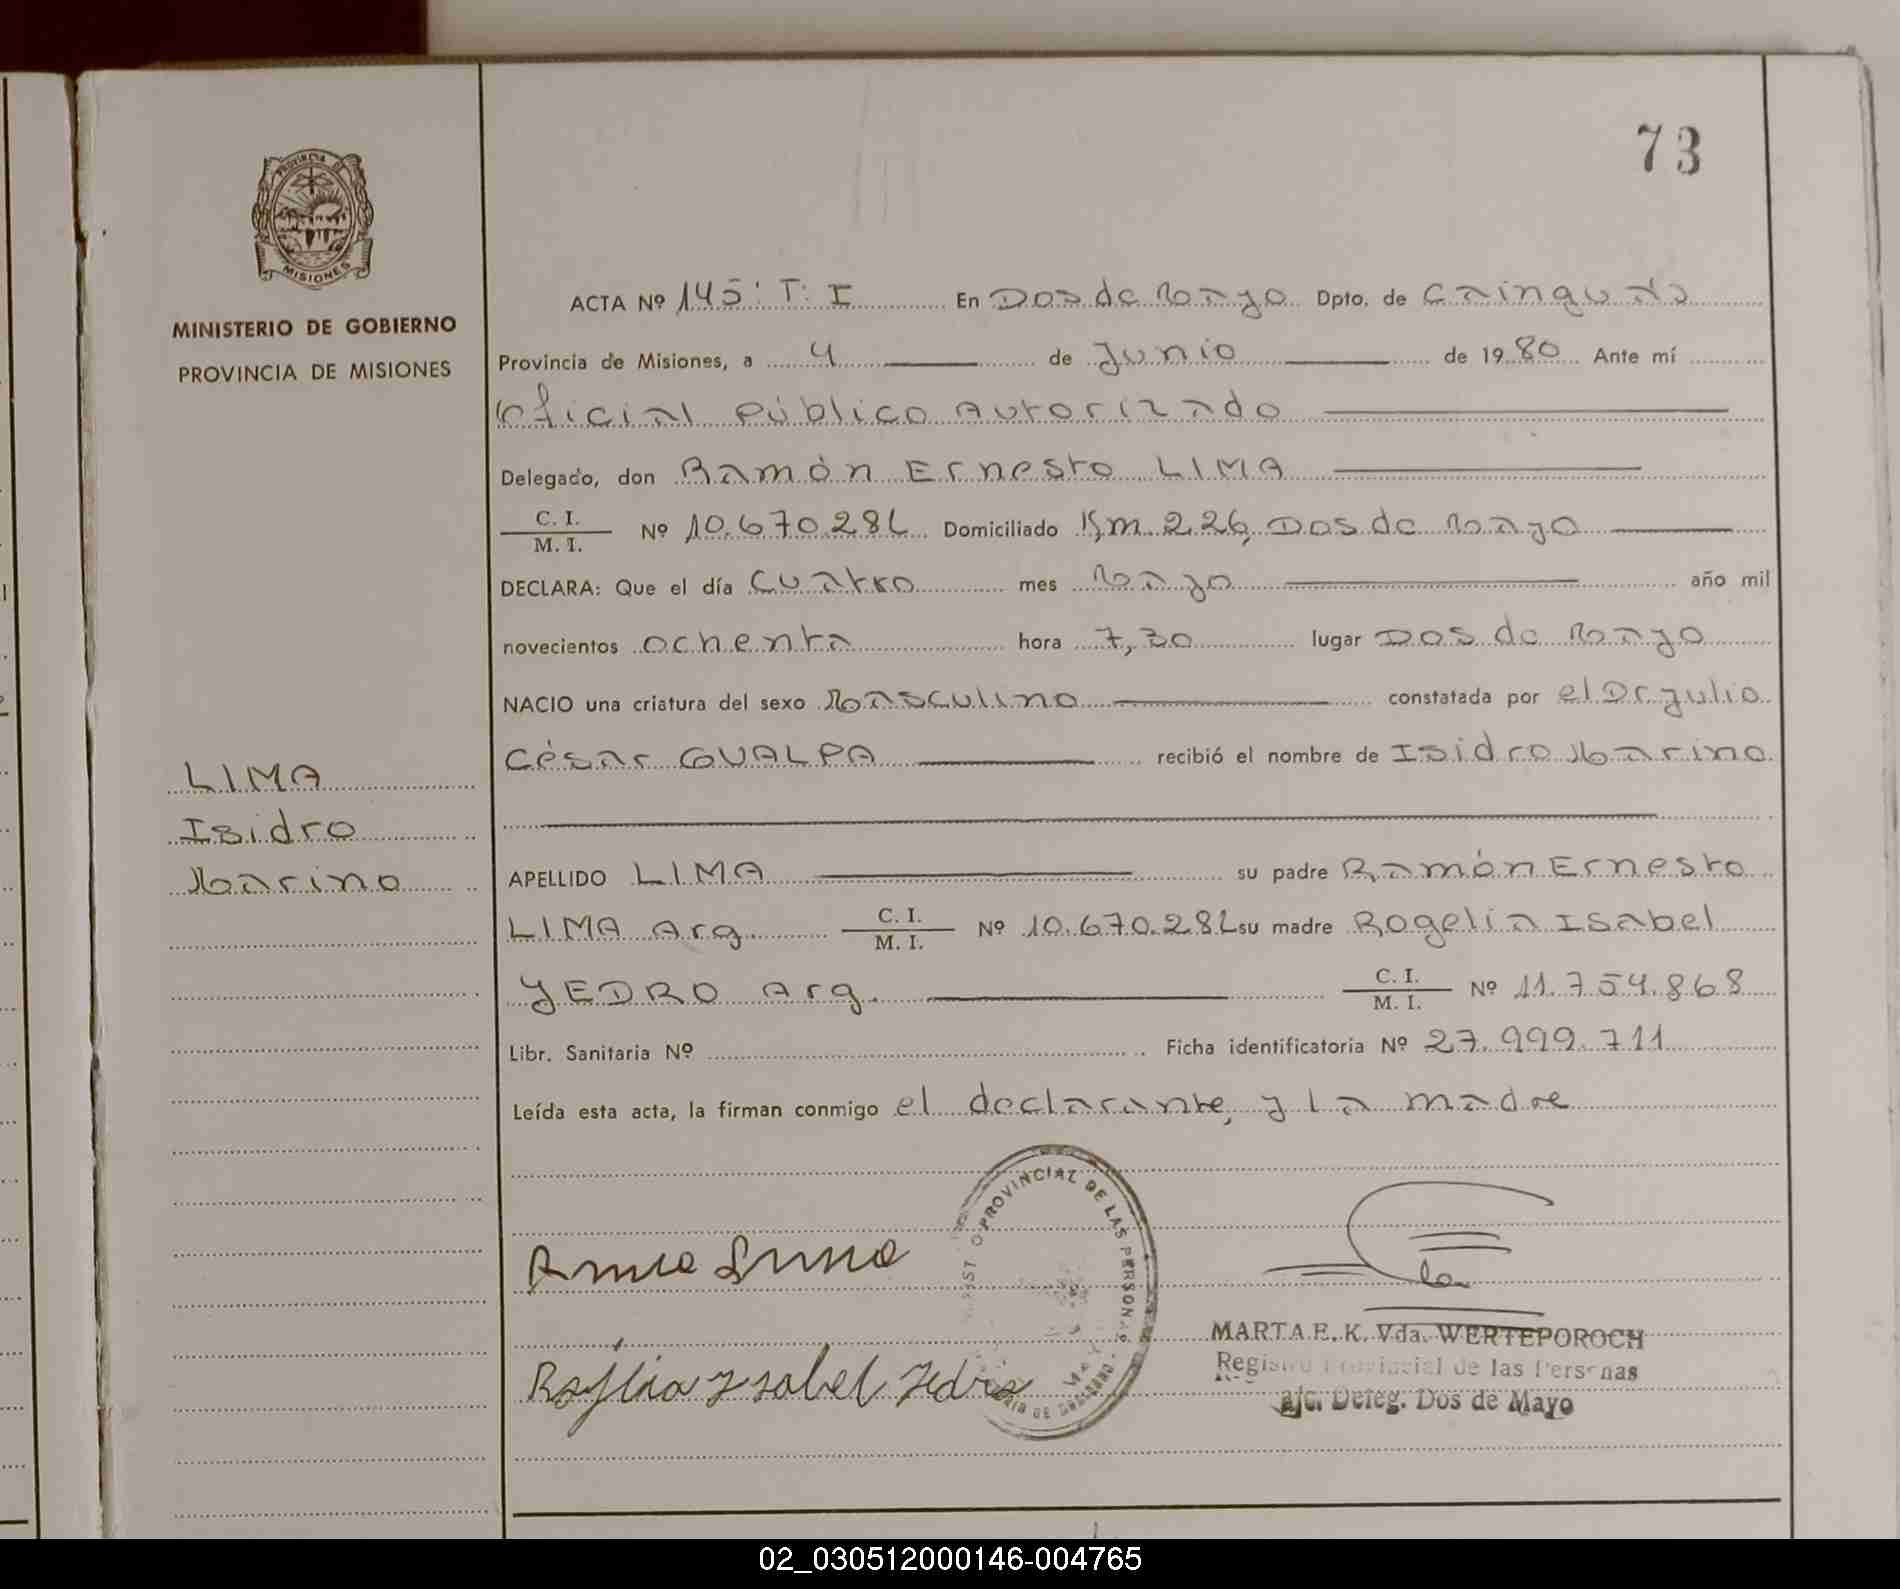 73
PROVINCIA DE
MISIONES
MINISTERIO DE GOBIERNO
PROVINCIA DE MISIONES
ACTA Nº 145 T: I En Dos de Mayo Dpto. de Cainguás
Provincia de Misiones, a 4 de Junio de 1980 Ante mí
Oficial Público Autorizado
Delegado, don Ramón Ernesto LIMA
C. I.
M. I. Nº 10.670.282 Domiciliado Km 226, Dos de Mayo
DECLARA: Que el día cuatro mes Mayo año mil
novecientos ochenta hora 7,30 lugar Dos de Mayo
NACIO una criatura del sexo Masculino constatada por el Dr Julio
César GUALPA recibió el nombre de Isidro Marino
LIMA
Isidro
Marino
APELLIDO LIMA su padre Ramón Ernesto
LIMA Arg. C. I.
M. I. Nº 10.670.282 su madre Rogelia Isabel
YEDRO Arg. C. I.
M. I. Nº 11.754.868
Libr. Sanitaria Nº Ficha identificatoria Nº 27.999.711
Leída esta acta, la firman conmigo el declarante, y la madre
PROVINCIAL DE LAS PERSONAS
MARTA E. K. Vda. WERTEPOROCH
Registro Provincial de las Personas
a/c. Deleg. Dos de Mayo
Ysabel
02_030512000146-004765